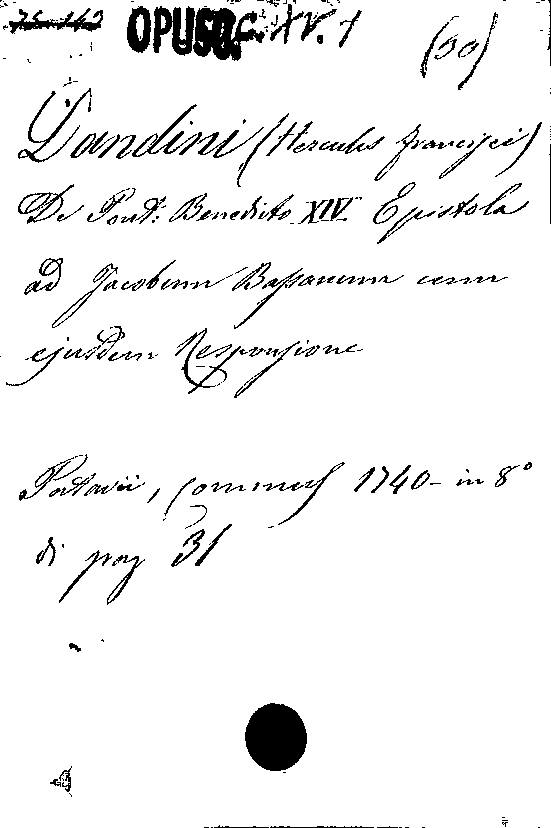 75-143 OPUSC. C. XV. 1 (30)
Dandini (Hercules Francisci)
De Pont: Benedicto XIV Epistola
ad Jacobum Bassanum cum
ejusdem Responsione
Patavii, 1740 - in 8°
di pag 31